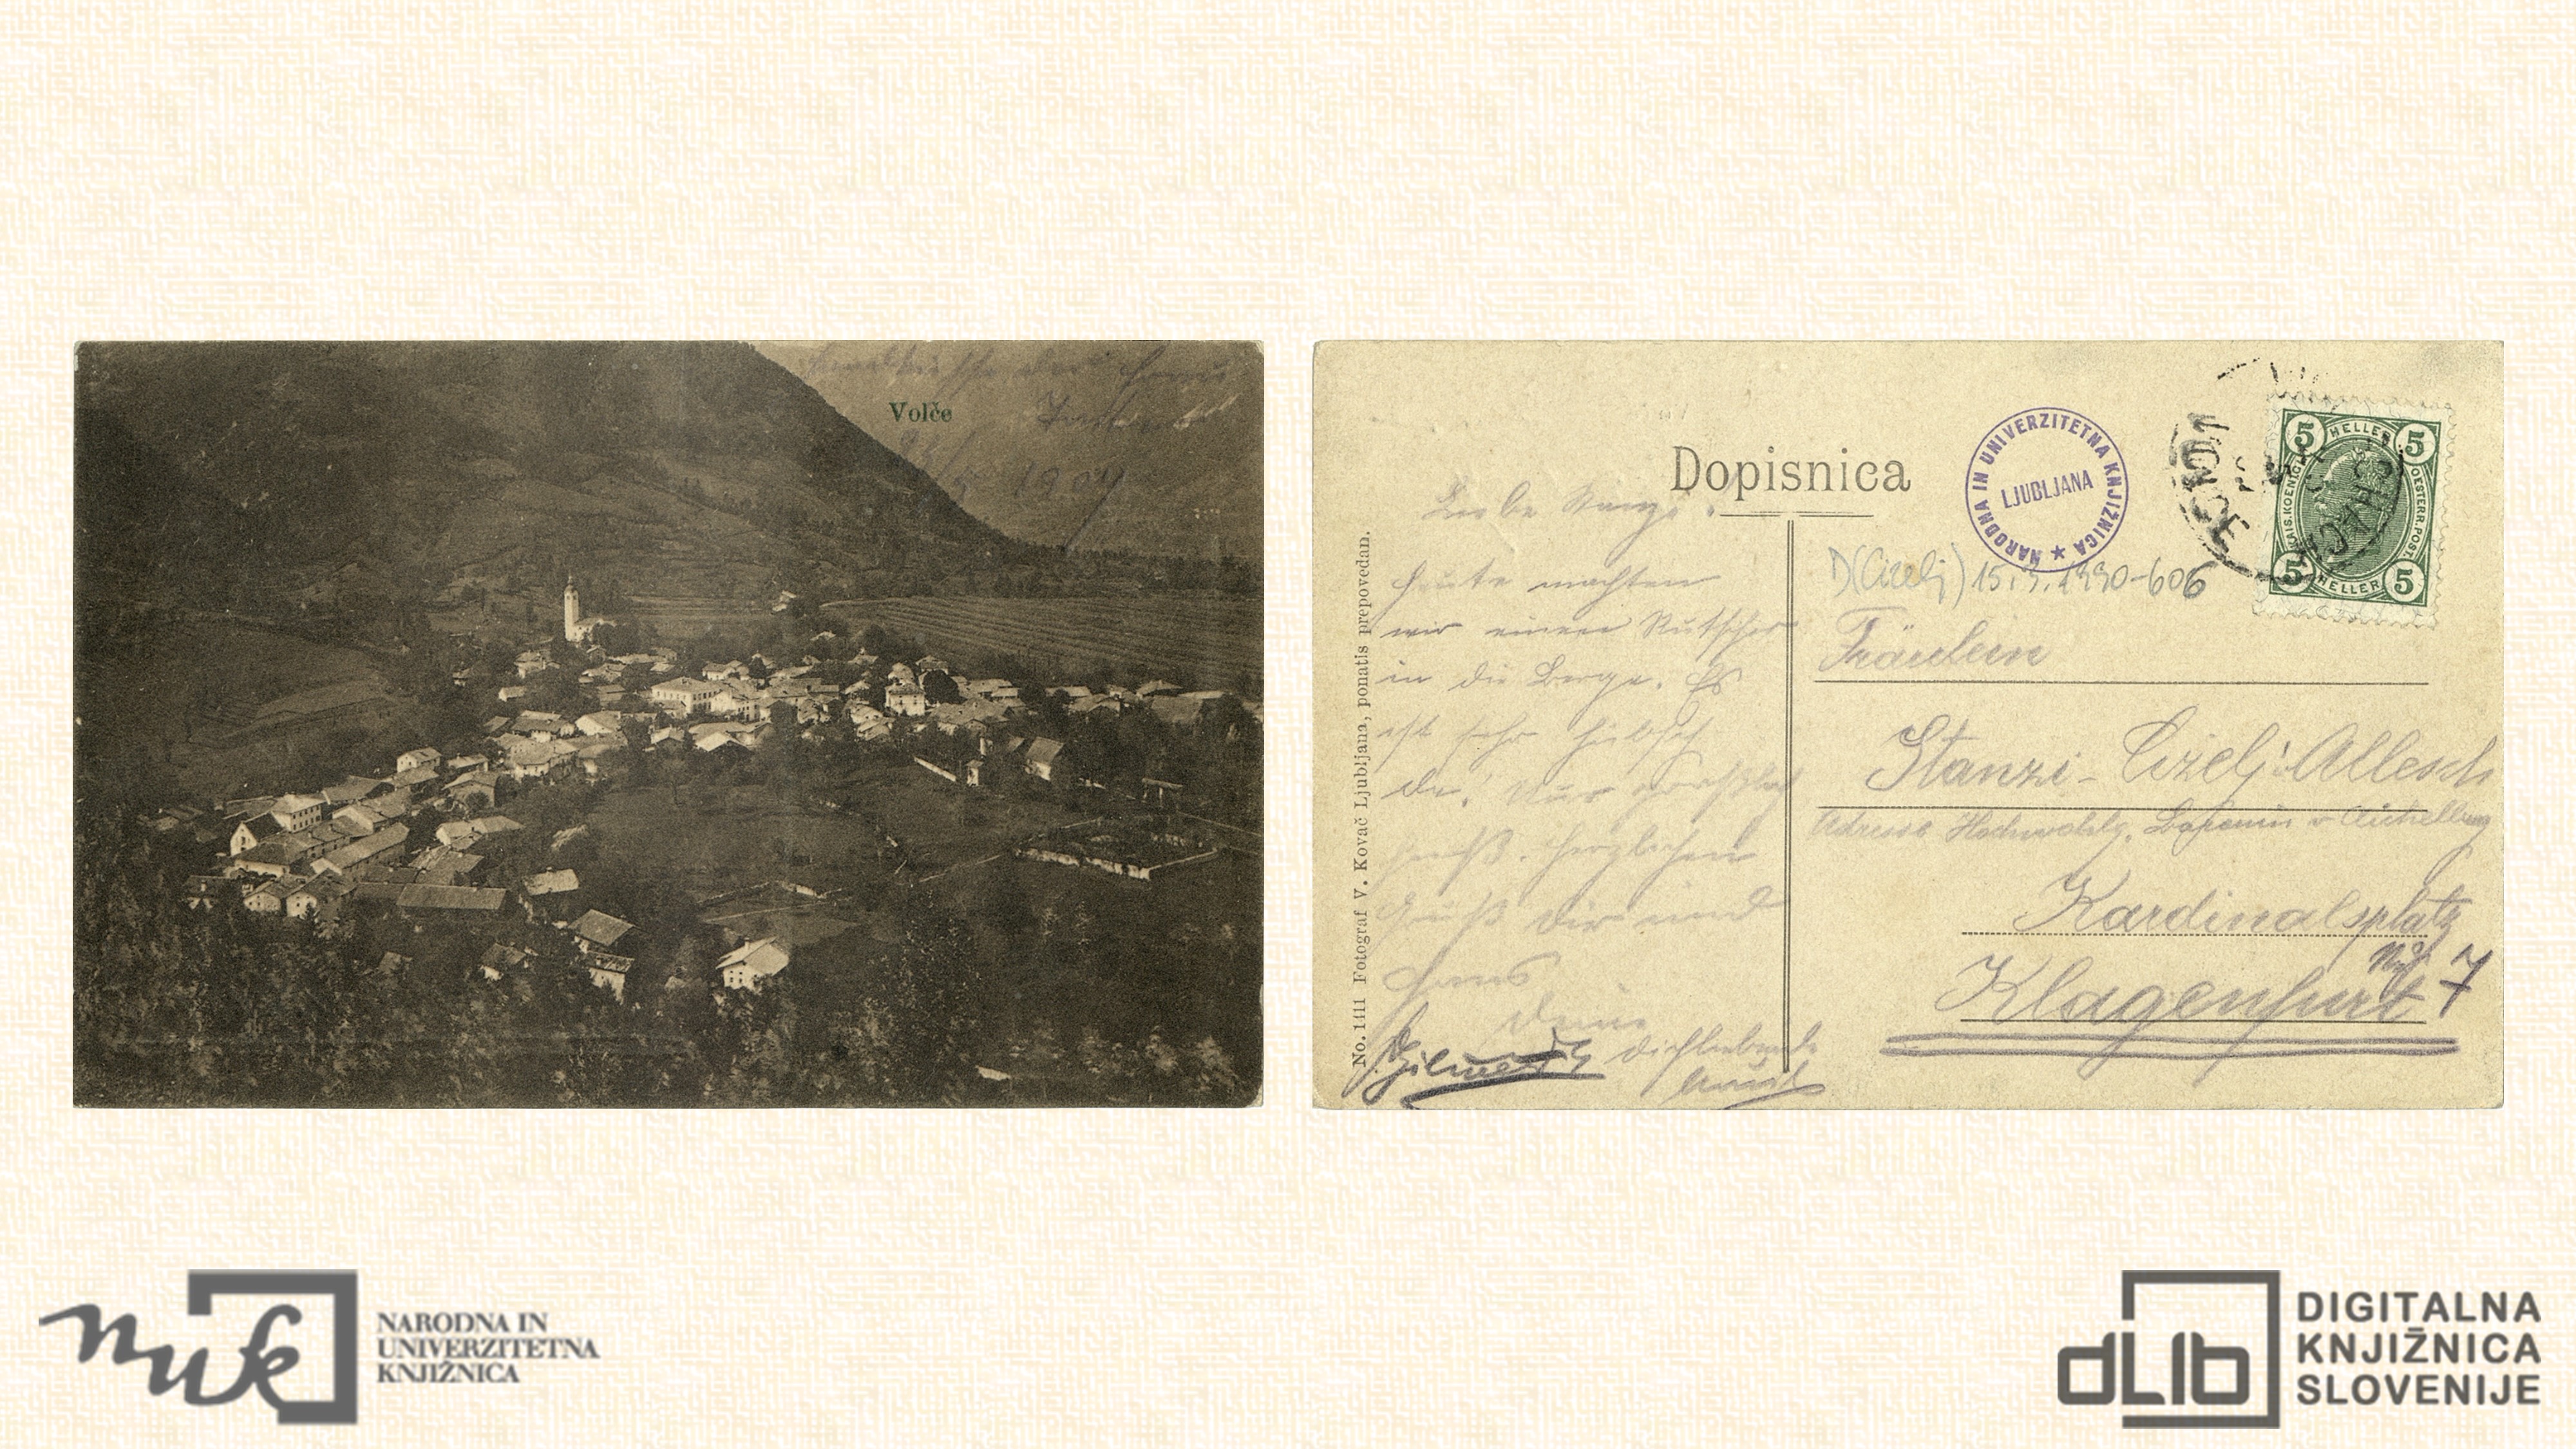 Volče
1907
Dopisnica
NARODNA IN UNIVERZITETNA KNJIŽNICA ★
LJUBLJANA
5 HELLER 5
KAIS. KOENIGL. OESTERR. POST.
5 HELLER 5
D(Cizelj) 15.3.1990-606
Liebe Stanzi!
Heute machten
wir einen Rutscher
in die Berge. Es
ist sehr hübsch
da! Nur
heiß. Herzlichen
Gruß Dir und
Hans
Deine
Dichliebende
Fräulein
Stanzi - Cizelj Allesch
Adresse Hochwohlg. Baronin v Aichelburg
Kardinalsplatz
No 7
Klagenfurt
No. 1411 Fotograf V. Kovač Ljubljana, ponatis prepovedan.
nuk
NARODNA IN
UNIVERZITETNA
KNJIŽNICA
dLib
DIGITALNA
KNJIŽNICA
SLOVENIJE